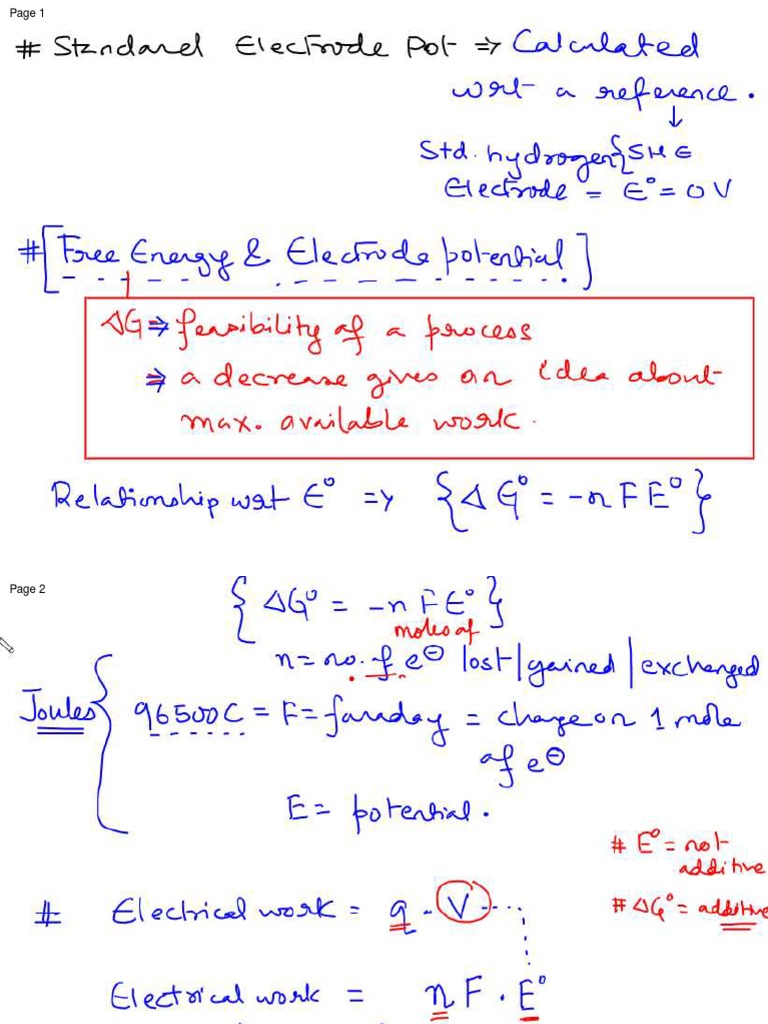 Page 1
# Standard Electrode Pot ⇒ Calculated
wrt a reference.
↓
Std. hydrogen { SHE
Electrode = E° = 0 V
# [Free Energy & Electrode potential]
ΔG ⇒ feasibility of a process
⇒ a decrease gives an idea about
max. available work.
Relationship wrt E° => {ΔG° = -nFE°}
Page 2
{ΔG° = -nFE°}
moles of
n = no. of e⊖ lost/gained/exchanged
Joules { 96500C = F = faraday = charge on 1 mole
of e⊖
E = potential.
# E° = not
additive
# ΔG° = additive
# Electrical work = q . V
Electrical work = nF . E°